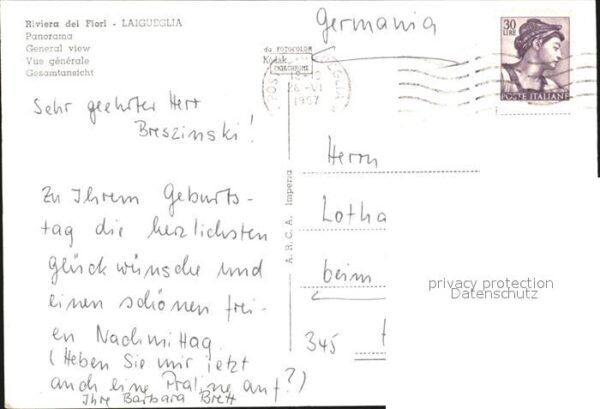 Riviera dei Fiori - LAIGUEGLIA
Panorama
General view
Vue générale
Gesamtansicht
Germania
da FOTOCOLOR
Kodak
EKTACHROME
26 - VI
1967
30
LIRE
POSTE ITALIANE
Sehr geehrter Herr
Breszinski!
Zu Ihrem Geburts-
tag die herzlichsten
Glückwünsche und
einen schönen frei-
en Nachmittag.
(Heben Sie mir jetzt
auch eine Praline auf?)
Ihre Barbara Brett
A.R.C.A. Imperia
Herrn
Lotha
beim
345
privacy protection
Datenschutz